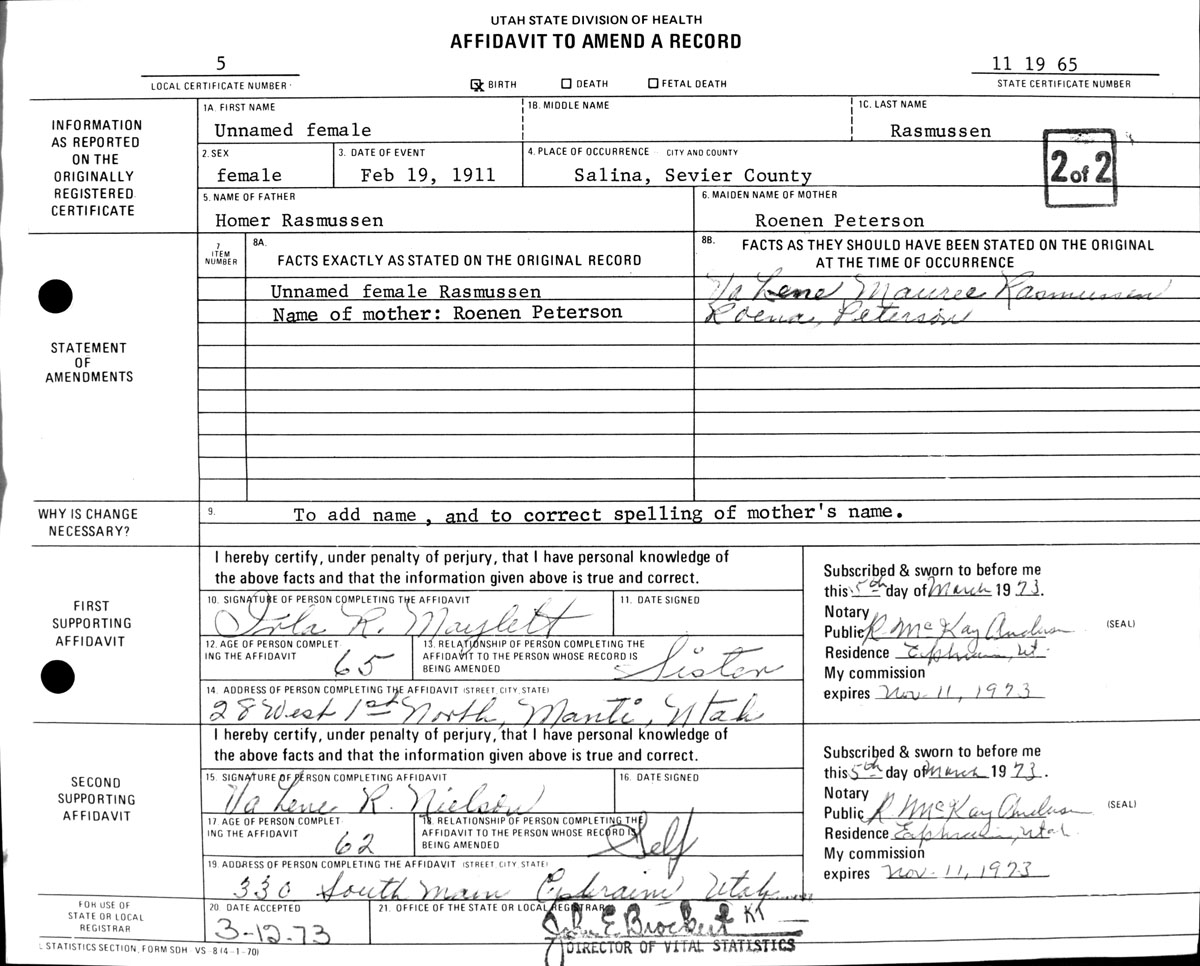 UTAH STATE DIVISION OF HEALTH
AFFIDAVIT TO AMEND A RECORD
5
11 19 65
LOCAL CERTIFICATE NUMBER
BIRTH DEATH FETAL DEATH
STATE CERTIFICATE NUMBER
INFORMATION
AS REPORTED
ON THE
ORIGINALLY
REGISTERED
CERTIFICATE
1A. FIRST NAME
Unnamed female
1B. MIDDLE NAME
1C. LAST NAME
Rasmussen
2. SEX
female
3. DATE OF EVENT
Feb 19, 1911
4. PLACE OF OCCURRENCE - CITY AND COUNTY
Salina, Sevier County
2 of 2
5. NAME OF FATHER
Homer Rasmussen
6. MAIDEN NAME OF MOTHER
Roenen Peterson
STATEMENT
OF
AMENDMENTS
7
ITEM
NUMBER
8A.
FACTS EXACTLY AS STATED ON THE ORIGINAL RECORD
8B. FACTS AS THEY SHOULD HAVE BEEN STATED ON THE ORIGINAL
AT THE TIME OF OCCURRENCE
Unnamed female Rasmussen
Va Lene Mauree Rasmussen
Name of mother: Roenen Peterson
Roena Peterson
WHY IS CHANGE
NECESSARY?
9.
To add name, and to correct spelling of mother's name.
FIRST
SUPPORTING
AFFIDAVIT
I hereby certify, under penalty of perjury, that I have personal knowledge of
the above facts and that the information given above is true and correct.
10. SIGNATURE OF PERSON COMPLETING THE AFFIDAVIT
R. Maylett
11. DATE SIGNED
12. AGE OF PERSON COMPLET
ING THE AFFIDAVIT
65
13. RELATIONSHIP OF PERSON COMPLETING THE
AFFIDAVIT TO THE PERSON WHOSE RECORD IS
BEING AMENDED
Sister
14. ADDRESS OF PERSON COMPLETING THE AFFIDAVIT (STREET, CITY, STATE)
28 West 1st North, Manti, Utah
Subscribed & sworn to before me
this 5th day of March 1973.
Notary
Public R. McKay Anderson
(SEAL)
Residence Ephraim, Ut.
My commission
expires Nov. 11, 1973
SECOND
SUPPORTING
AFFIDAVIT
I hereby certify, under penalty of perjury, that I have personal knowledge of
the above facts and that the information given above is true and correct.
15. SIGNATURE OF PERSON COMPLETING AFFIDAVIT
Va Lene R. Nielson
16. DATE SIGNED
17. AGE OF PERSON COMPLET
ING THE AFFIDAVIT
62
18. RELATIONSHIP OF PERSON COMPLETING THE
AFFIDAVIT TO THE PERSON WHOSE RECORD IS
BEING AMENDED
Self
19. ADDRESS OF PERSON COMPLETING THE AFFIDAVIT (STREET, CITY, STATE)
330 South Main Ephraim, Utah
Subscribed & sworn to before me
this 5th day of March 1973.
Notary
Public R. McKay Anderson
(SEAL)
Residence Ephraim, Utah
My commission
expires Nov. 11, 1973
FOR USE OF
STATE OR LOCAL
REGISTRAR
20. DATE ACCEPTED
3-12-73
21. OFFICE OF THE STATE OR LOCAL REGISTRAR
John E. Brockert KT
DIRECTOR OF VITAL STATISTICS
STATISTICS SECTION, FORM SDH - VS - 8 (4-1-70)